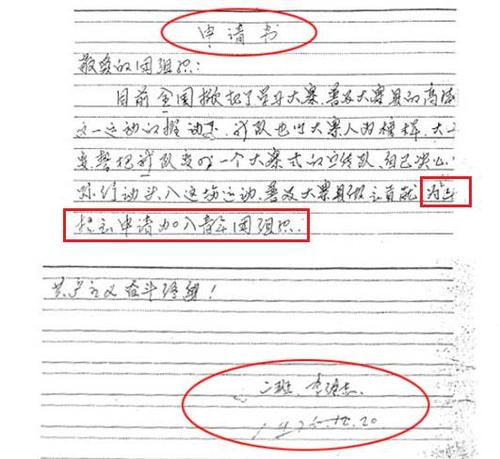 申请书
敬爱的团组织：
目前全国掀起了学习大寨、普及大寨县的高
这一运动的推动下，我队也以大寨人为榜样，大
变，誓把我队变成一个大寨式的宣传队，自己决心
际行动投入这场运动、普及大寨县做出贡献 为此
提出申请加入青年团组织．
共产主义奋斗终生！
二班、李
1975.12.20